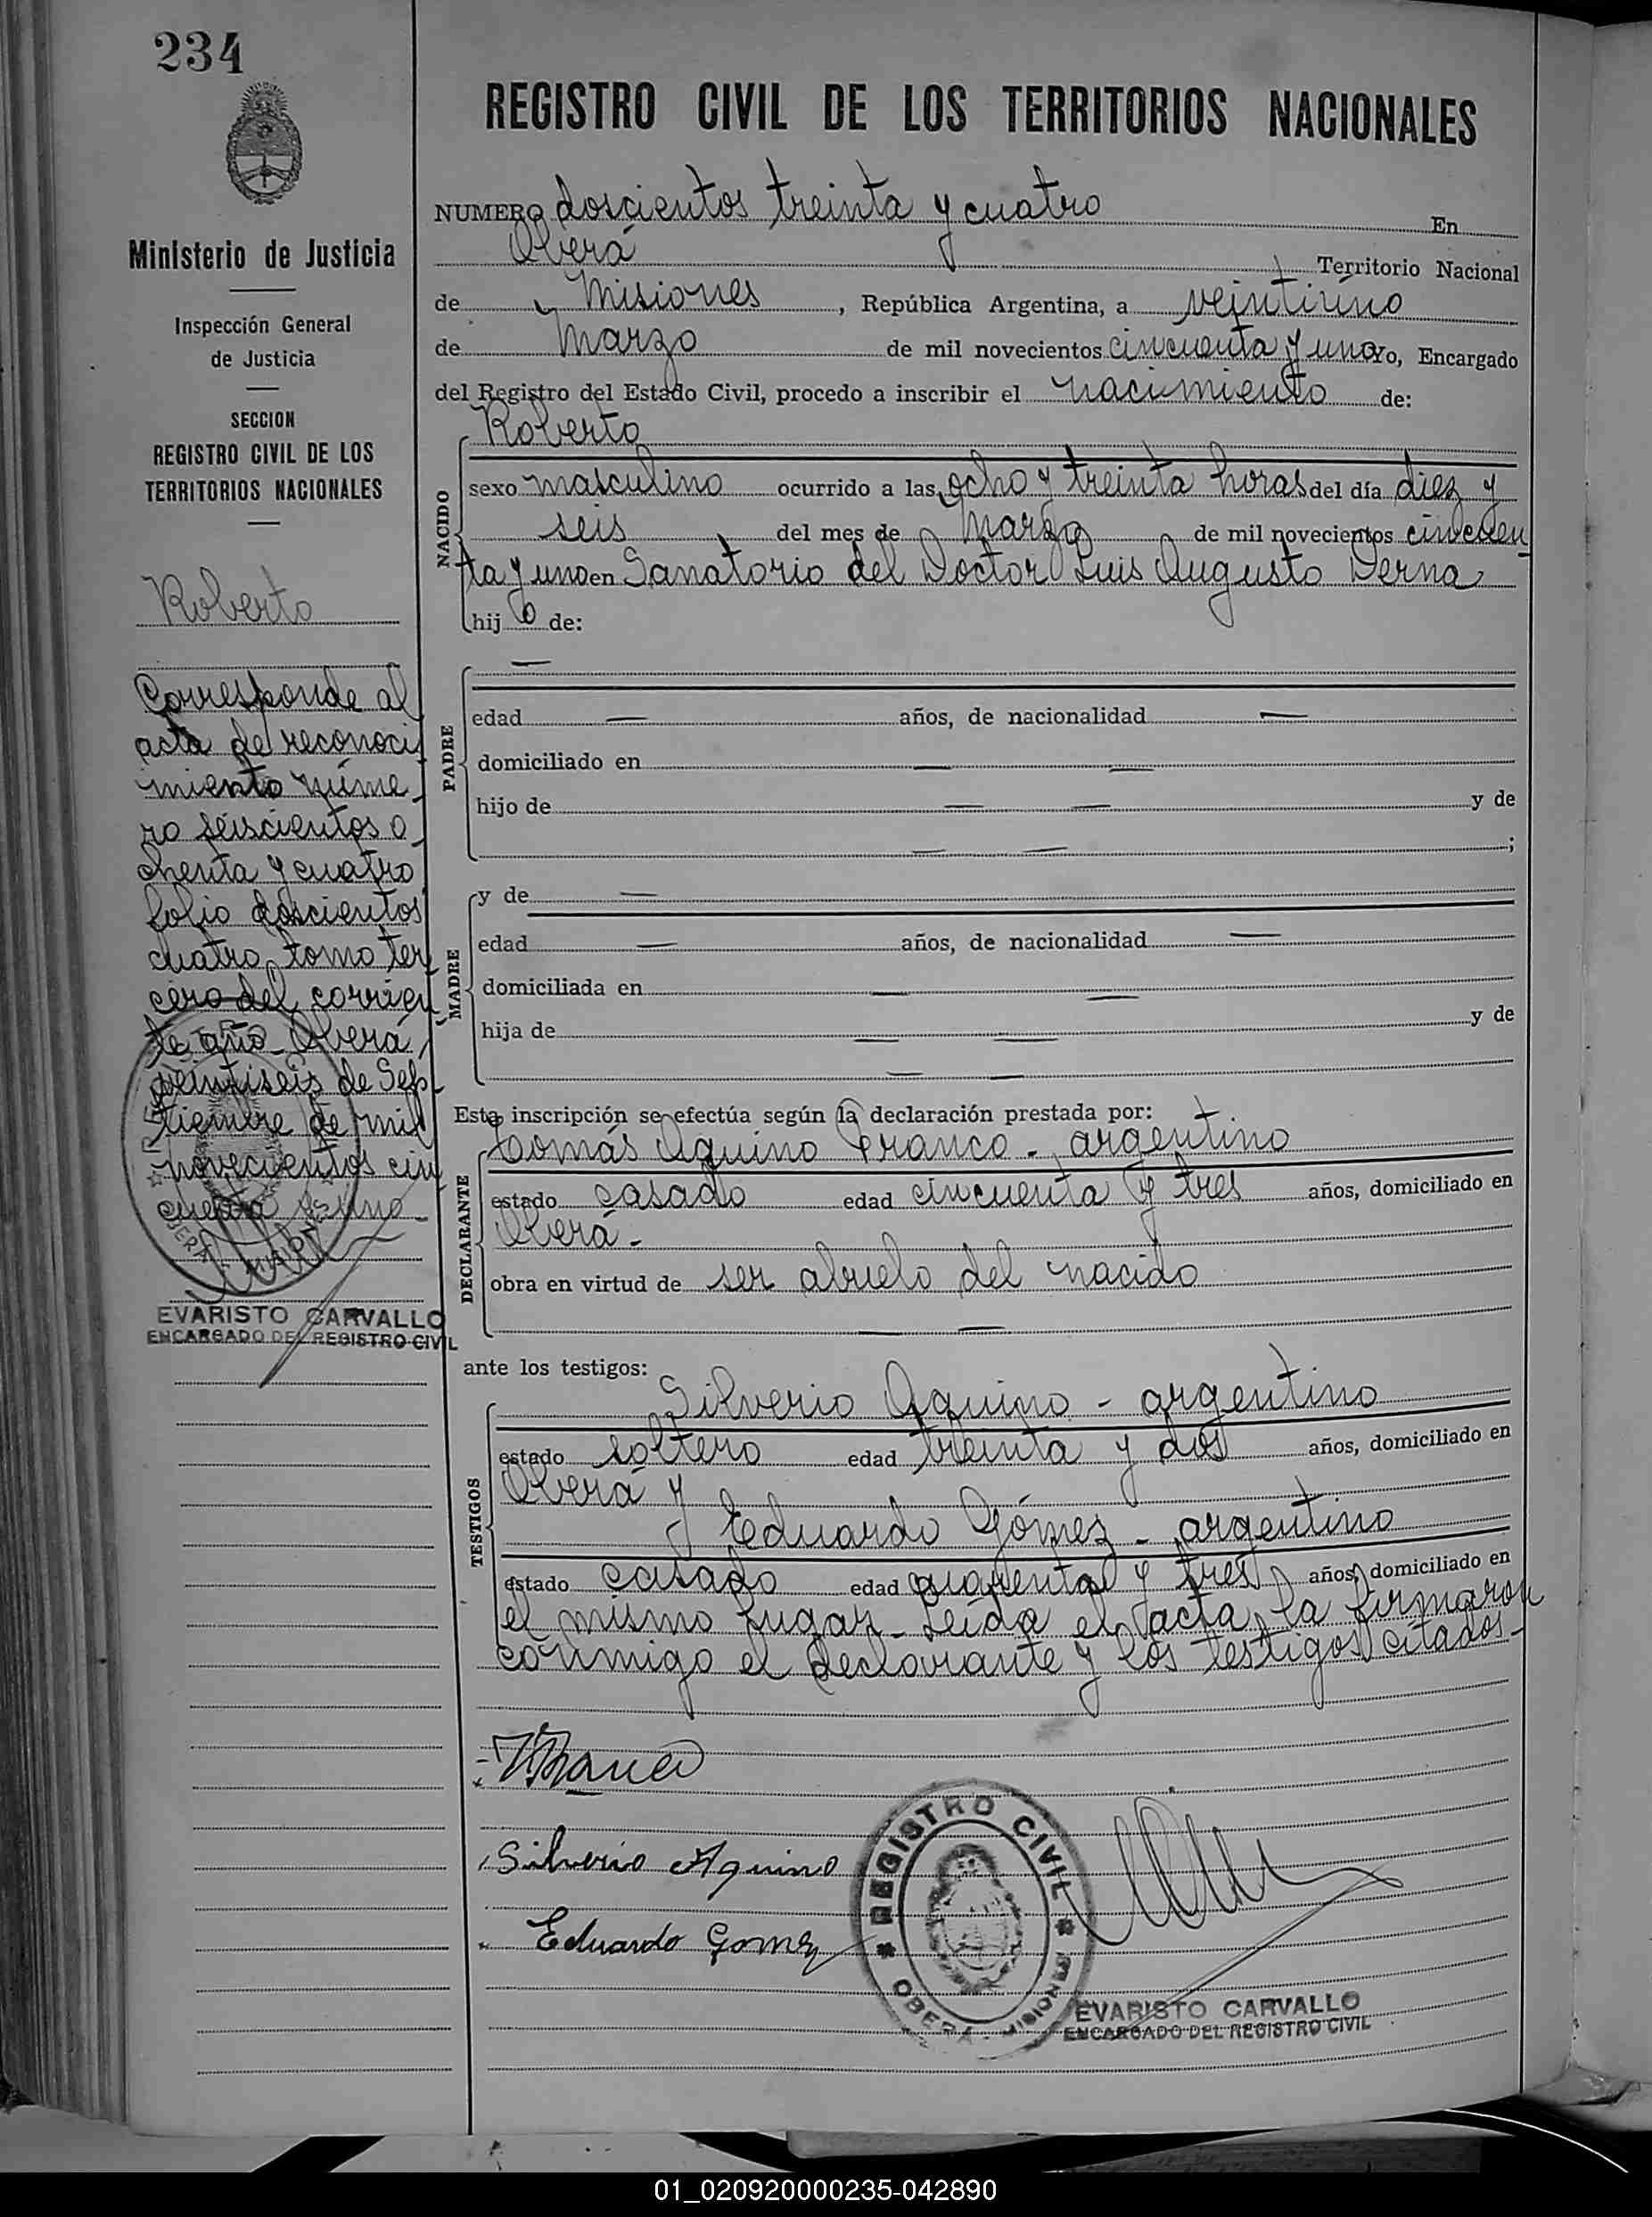 234
Ministerio de Justicia
Inspección General
de Justicia
SECCION
REGISTRO CIVIL DE LOS
TERRITORIOS NACIONALES
Roberto
Corresponde al
acta de reconoci
miento núme
ro seiscientos o
chenta y cuatro
folio doscientos
cuatro, tomo ter
cero del corrien
te año - Oberá,
veintiseis de Sep
tiembre de mil
novecientos cin
cuenta y uno -
EVARISTO CARVALLO
ENCARGADO DEL REGISTRO CIVIL
REGISTRO CIVIL DE LOS TERRITORIOS NACIONALES
NUMERO doscientos treinta y cuatro En
Oberá Territorio Nacional
de Misiones, República Argentina, a veintiúno
de Marzo de mil novecientos cincuenta y uno Yo, Encargado
del Registro del Estado Civil, procedo a inscribir el nacimiento de:
NACIDO
Roberto
sexo masculino ocurrido a las ocho y treinta horas del día diez y
seis del mes de Marzo de mil novecientos cincuen
ta y uno en Sanatorio del Doctor Luis Augusto Derna
hijo de:
PADRE
—
edad — años, de nacionalidad —
domiciliado en — —
hijo de — — y de
— — ;
MADRE
y de —
edad — años, de nacionalidad —
domiciliada en — —
hija de — — y de
— —
Esta inscripción se efectúa según la declaración prestada por:
DECLARANTE
Tomás Aquino Franco - argentino
estado casado edad cincuenta y tres años, domiciliado en
Oberá -
obra en virtud de ser abuelo del nacido
— —
ante los testigos:
TESTIGOS
Silverio Aquino - argentino
estado soltero edad treinta y dos años, domiciliado en
Oberá y
Eduardo Gómez - argentino
estado casado edad cuarenta y tres años, domiciliado en
el mismo lugar - Leída el acta, la firmaron
conmigo el declarante y los testigos citados -
Silverio Aquino
Eduardo Gomez
REGISTRO CIVIL
OBERA - MISIONES
EVARISTO CARVALLO
ENCARGADO DEL REGISTRO CIVIL
01_020920000235-042890